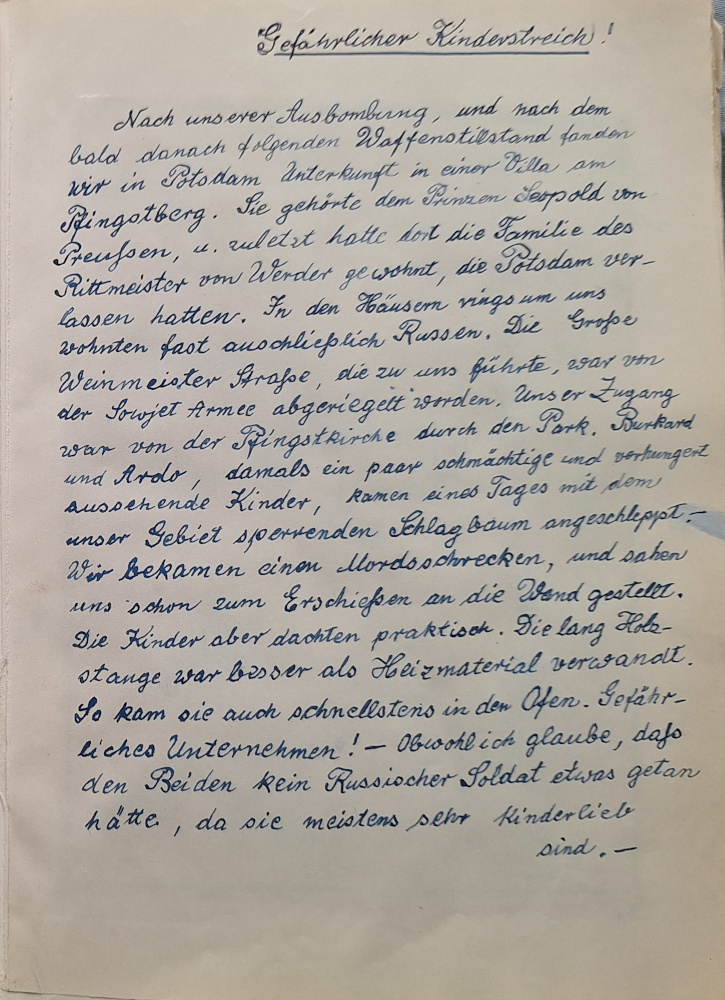 Gefährlicher Kinderstreich!
Nach unserer Ausbombung, und nach dem
bald danach folgenden Waffenstillstand fanden
wir in Potsdam Unterkunft in einer Villa am
Pfingstberg. Sie gehörte dem Prinzen Leopold von
Preußen, u. zuletzt hatte dort die Familie des
Rittmeister von Werder gewohnt, die Potsdam ver-
lassen hatten. In den Häusern rings um uns
wohnten fast auschließlich Russen. Die Große
Weinmeister Straße, die zu uns führte, war von
der Sowjet Armee abgeriegelt worden. Unser Zugang
war von der Pfingstkirche durch den Park. Burkard
und Ardo, damals ein paar schmächtige und verhungert
aussehende Kinder, kamen eines Tages mit dem
unser Gebiet sperrenden Schlagbaum angeschleppt.-
Wir bekamen einen Mordsschrecken, und sahen
uns schon zum Erschießen an die Wand gestellt.
Die Kinder aber dachten praktisch. Die lang Holz-
stange war besser als Heizmaterial verwandt.
So kam sie auch schnellstens in den Ofen. Gefähr-
liches Unternehmen! – Obwohl ich glaube, daß
den Beiden kein Russischer Soldat etwas getan
hätte, da sie meistens sehr kinderlieb
sind. –